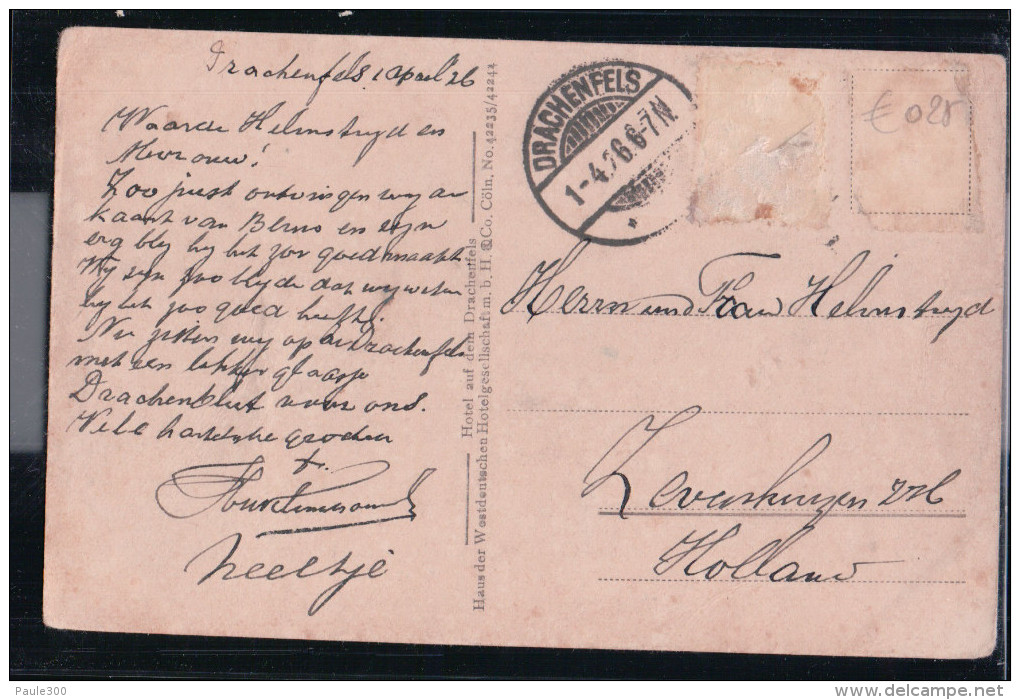 Drachenfels 1 april '26
Waarde Helmstryd en
Mevrouw!
Zoo juist ontvingen wy een
kaart van Benno en zyn
erg bly hy het zoo goed maakt
Wy zyn zoo blyde dat wy weten
hy het zoo goed heeft.
Nu zitten wy op den Drachenfels
met een lekker glaasje
Drachenblut voor ons.
Vele hartelyke groeten
Neeltje
Hotel auf dem Drachenfels
Haus der Westdeutschen Hotelgesellschaft m. b. H. & Co. Cöln, No. 42235/42242
DRACHENFELS
1-4.26.6-7N.
*
€ 028
Herrn und Frau Helmstryd
Zevenhuizen ZH
Holland
Paule300
delcampe.net